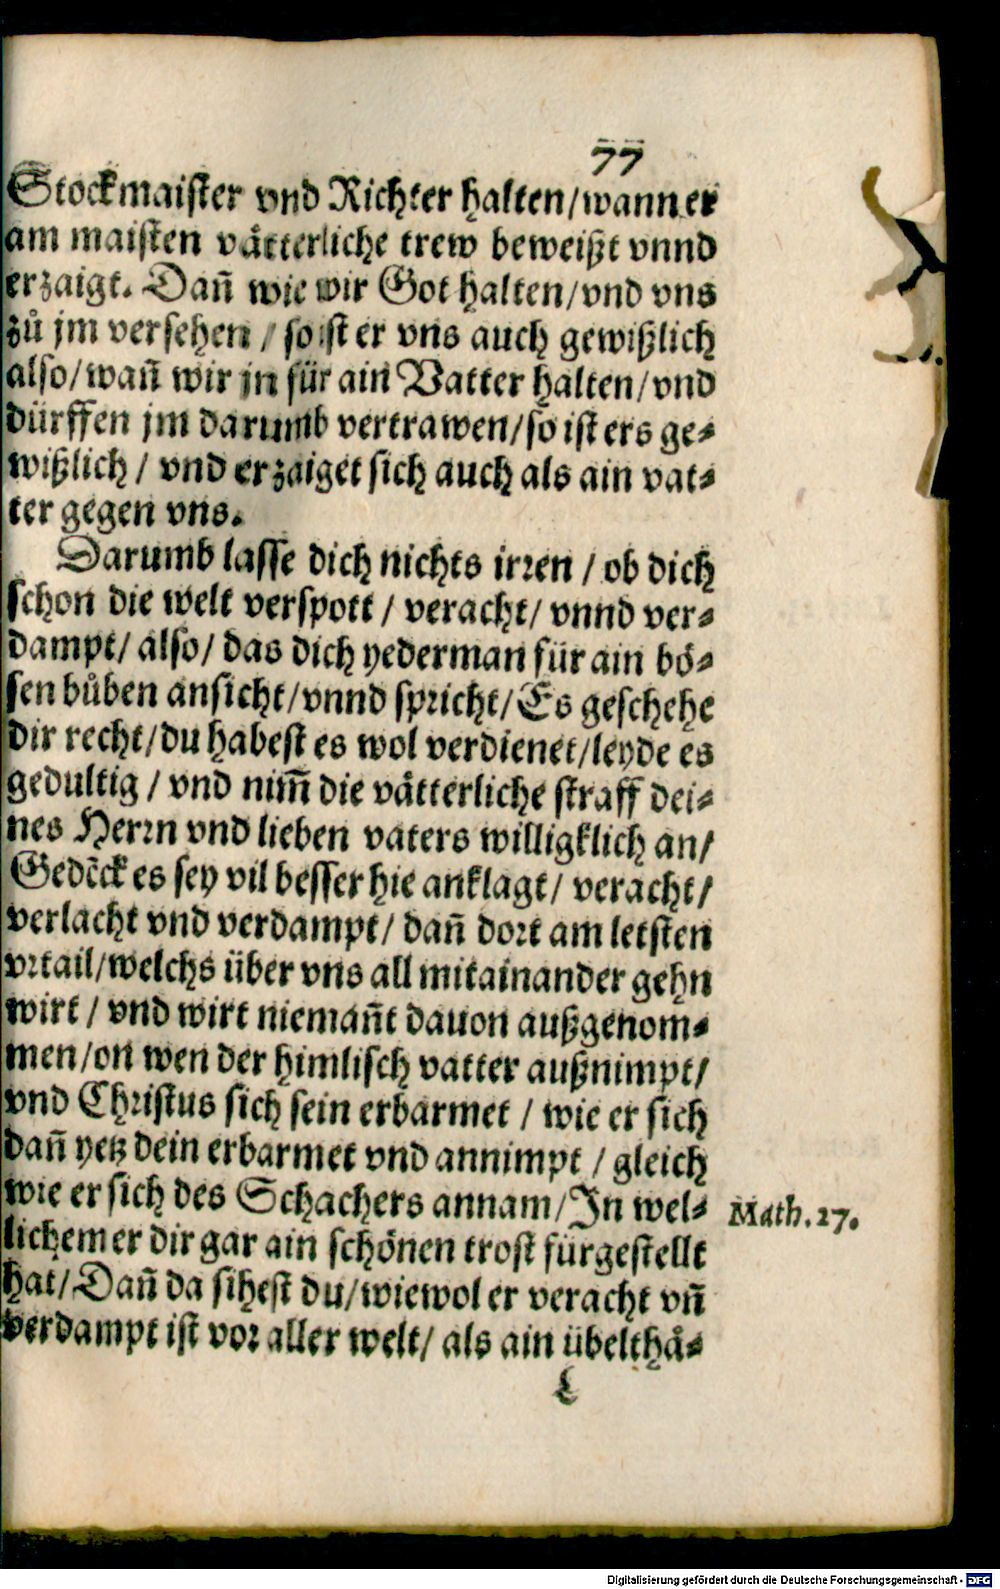 77
Stockmaister vnd Richter halten/wann er
am maisten våtterliche trew beweißt vnnd
erzaigt. Dañ wie wir Got halten/vnd vns
zů jm versehen / so ist er vns auch gewißlich
also/wañ wir jn für ain Vatter halten/vnd
dürffen jm darumb vertrawen/so ist ers ge⸗
wißlich / vnd erzaiget sich auch als ain vat⸗
ter gegen vns.
Darumb lasse dich nichts irren / ob dich
schon die welt verspott / veracht/ vnnd ver⸗
dampt/ also/ das dich yederman für ain bö⸗
sen bůben ansicht/vnnd spricht/Es geschehe
dir recht/du habest es wol verdienet/leyde es
gedultig / vnd nim̃ die våtterliche straff dei⸗
nes Herrn vnd lieben vaters willigklich an/
Gedẽck es sey vil besser hie anklagt/ veracht/
verlacht vnd verdampt/ dañ dort am letsten
vrtail/welchs über vns all mitainander gehn
wirt / vnd wirt niemañt dauon außgenom⸗
men/on wen der himlisch vatter außnimpt/
vnd Christus sich sein erbarmet / wie er sich
dañ yetz dein erbarmet vnd annimpt / gleich
wie er sich des Schachers annam/In wel⸗
Math. 27.
lichem er dir gar ain schönen trost fürgestellt
hat/Dañ da sihest du/wiewol er veracht vñ
verdampt ist vor aller welt/ als ain übelthå⸗
L
Digitalisierung gefördert durch die Deutsche Forschungsgemeinschaft - DFG